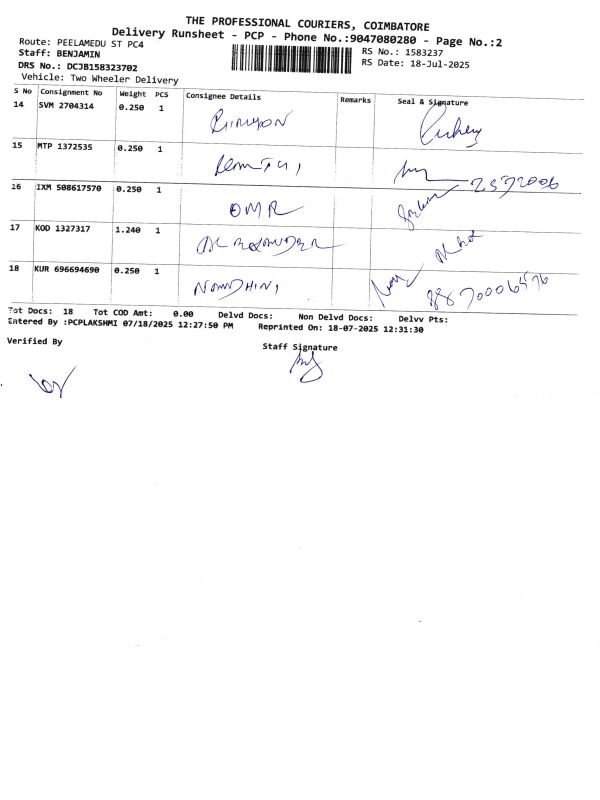 THE PROFESSIONAL COURIERS, COIMBATORE
Delivery Runsheet - PCP - Phone No.:9047080280 - Page No.:2
Route: PEELAMEDU ST PC4
RS No.: 1583237
Staff: BENJAMIN
RS Date: 18-Jul-2025
DRS No.: DCJB158323702
Vehicle: Two Wheeler Delivery
S No Consignment No Weight PCS Consignee Details Remarks Seal & Signature
14 SVM 2704314 0.250 1
15 MTP 1372535 0.250 1
16 IXM 508617570 0.250 1 OMR
17 KOD 1327317 1.240 1
18 KUR 696694690 0.250 1 NANDHINI
Tot Docs: 18 Tot COD Amt: 0.00 Delvd Docs: Non Delvd Docs: Delvv Pts:
Entered By :PCPLAKSHMI 07/18/2025 12:27:50 PM Reprinted On: 18-07-2025 12:31:30
Verified By
Staff Signature